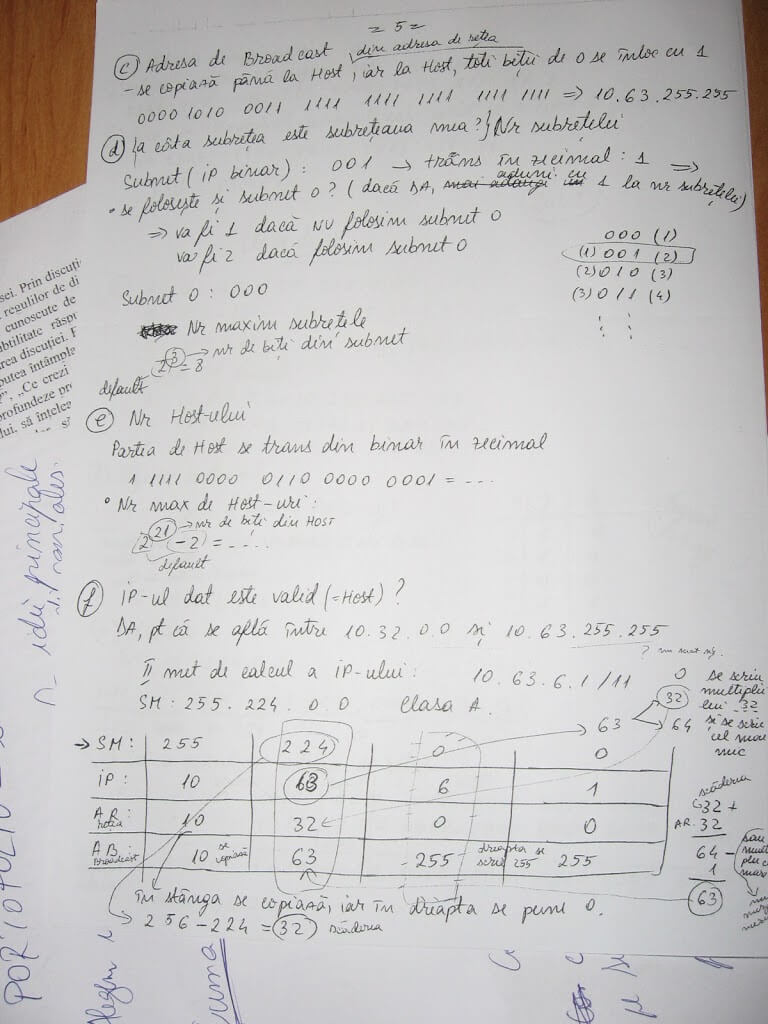 = 5 =
c) Adresa de Broadcast, din adresa de rețea
- se copiază până la Host, iar la Host, toți biții de 0 se înloc cu 1
0000 1010 0011 1111 1111 1111 1111 1111 => 10.63.255.255
d) {a câta subrețea este subrețeaua mea?} Nr subrețelui
Subnet (iP binar): 001 → trans în zecimal: 1 =>
• se folosește și subnet 0? (dacă DA, aduni cu 1 la nr subrețelui)
=> va fi 1 dacă NU folosim subnet 0
va fi 2 dacă folosim subnet 0
000 (1)
(1) 001 (2)
(2) 010 (3)
(3) 011 (4)
Subnet 0: 000
Nr maxim subrețele
2^3 = 8 → nr de biți din subnet
default
e) Nr Host-ului
Partea de Host se trans din binar în zecimal
1 1111 0000 0110 0000 0001 = ...
• Nr max de Host-uri:
2^21 - 2 = .... → nr de biți din HOST
default
f) iP-ul dat este valid (=Host)?
DA, pt că se află între 10.32.0.0 și 10.63.255.255
? nu sunt sig.
II met de calcul a iP-ului: 10.63.6.1/11
SM: 255.224.0.0 Clasa A.
0 se scriu
32 multiplii
lui 32
63 64 și se scrie
cel mai
mic
→ SM: 255 224 0 0
iP: 10 63 6 1
AR: rețea 10 32 0 0
AB: Broadcast 10 se copiază 63 255 dreapta se scrie 255 255
scăderea
32 +
AR. 32
64 -
1
63
sau
în stânga se copiază, iar în dreapta se pune 0.
256 - 224 = 32 scăderea
sei. Prin discuți
regulilor de di
cunoscute de
btilitate răsp
area discuției. F
putea întâmple
?", „Ce crezi
profundeze pro
lui, să înțeleg
idei principale